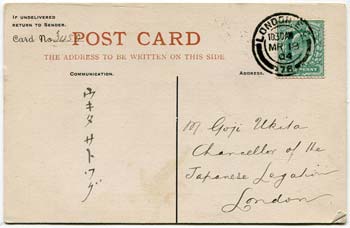 IF UNDELIVERED
RETURN TO SENDER.
Card No.
POST CARD
THE ADDRESS TO BE WRITTEN ON THIS SIDE
COMMUNICATION.
ADDRESS.
LONDON
10.30AM
MR 19
04
ウキタサトツグ
M. Goji Ukita
Chancellor of the
Japanese Legation
London